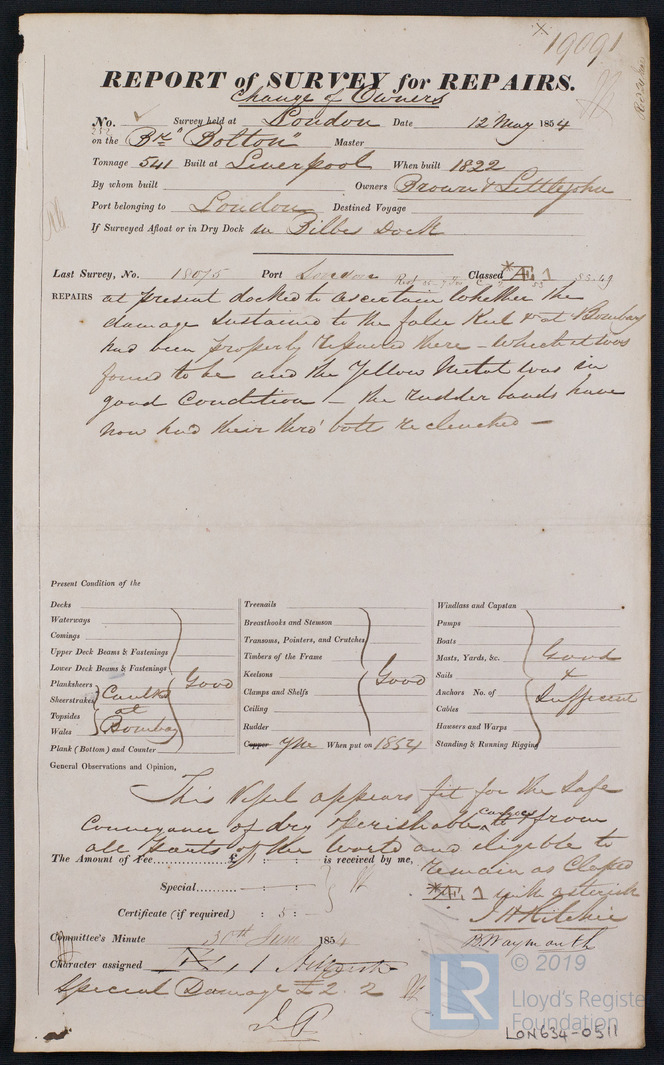 19091
REPORT of SURVEY for REPAIRS.
Change of Owners
No. Survey held at London Date 12 May 1854
on the Bk "Bolton" Master
Tonnage 541 Built at Liverpool When built 1822
By whom built Owners Brown & Littlejohn
Port belonging to London Destined Voyage
If Surveyed Afloat or in Dry Dock in Bilbes Dock
Last Survey, No. 18075 Port London Classed *Æ 1 53 85-49
REPAIRS at present docked to ascertain whether the
damage sustained to the false Keel &c at Bombay
had been properly repaired there - which it was
found to be and the Yellow Metal was in
good Condition - the rudder bands have
now had their thro' bolts reclenched -
Present Condition of the
Decks
Waterways
Comings
Upper Deck Beams & Fastenings
Lower Deck Beams & Fastenings
Planksheers
Sheerstrakes
Topsides
Wales
Caulkd
at
Bombay
Good
Plank (Bottom) and Counter
Treenails
Breasthooks and Stemson
Transoms, Pointers, and Crutches
Timbers of the Frame
Keelsons
Clamps and Shelfs
Ceiling
Rudder
Good
Copper YM When put on 1854
Windlass and Capstan
Pumps
Boats
Masts, Yards, &c.
Sails
Anchors No. of
Cables
Hawsers and Warps
Standing & Running Rigging
Good
&
Sufficient
General Observations and Opinion,
This Vessel appears fit for the Safe
Conveyance of dry & perishable Cargoes to & from
all parts of the World and eligible to
remain as Classed
*Æ 1 with asterisk
The Amount of Fee...............£ : : is received by me,
Special......... : :
Certificate (if required) : 5 :
J H Ritchie
B Waymouth
Committee's Minute 30th June 1854
Character assigned Æ 1
Special Damage £2. 2
© 2019
LR
Lloyd's Register
Foundation
LON634-0511